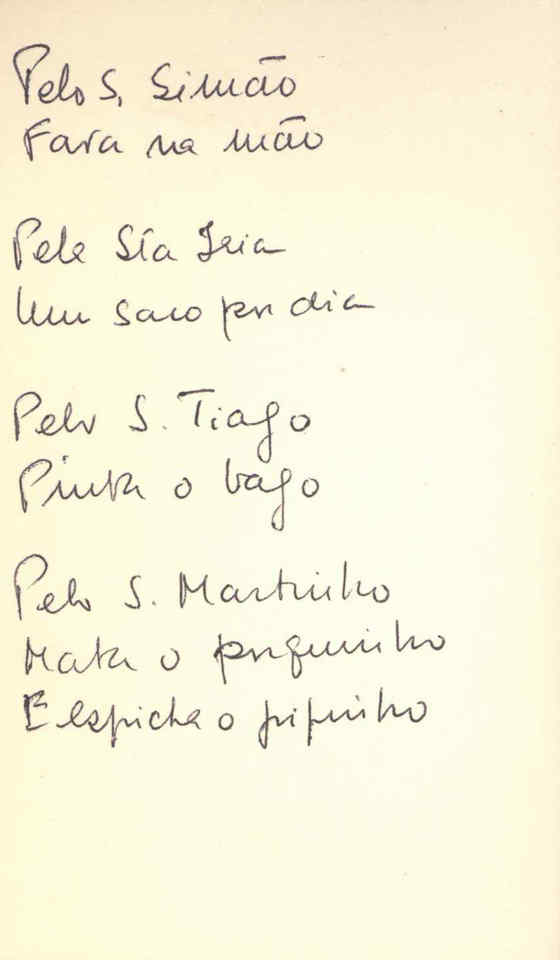 Pelo S. Simão
Fava na mão
Pela Sta Iria
Um saco por dia
Pelo S. Tiago
Pinta o bago
Pelo S. Martinho
Mata o porquinho
E espicha o pipinho